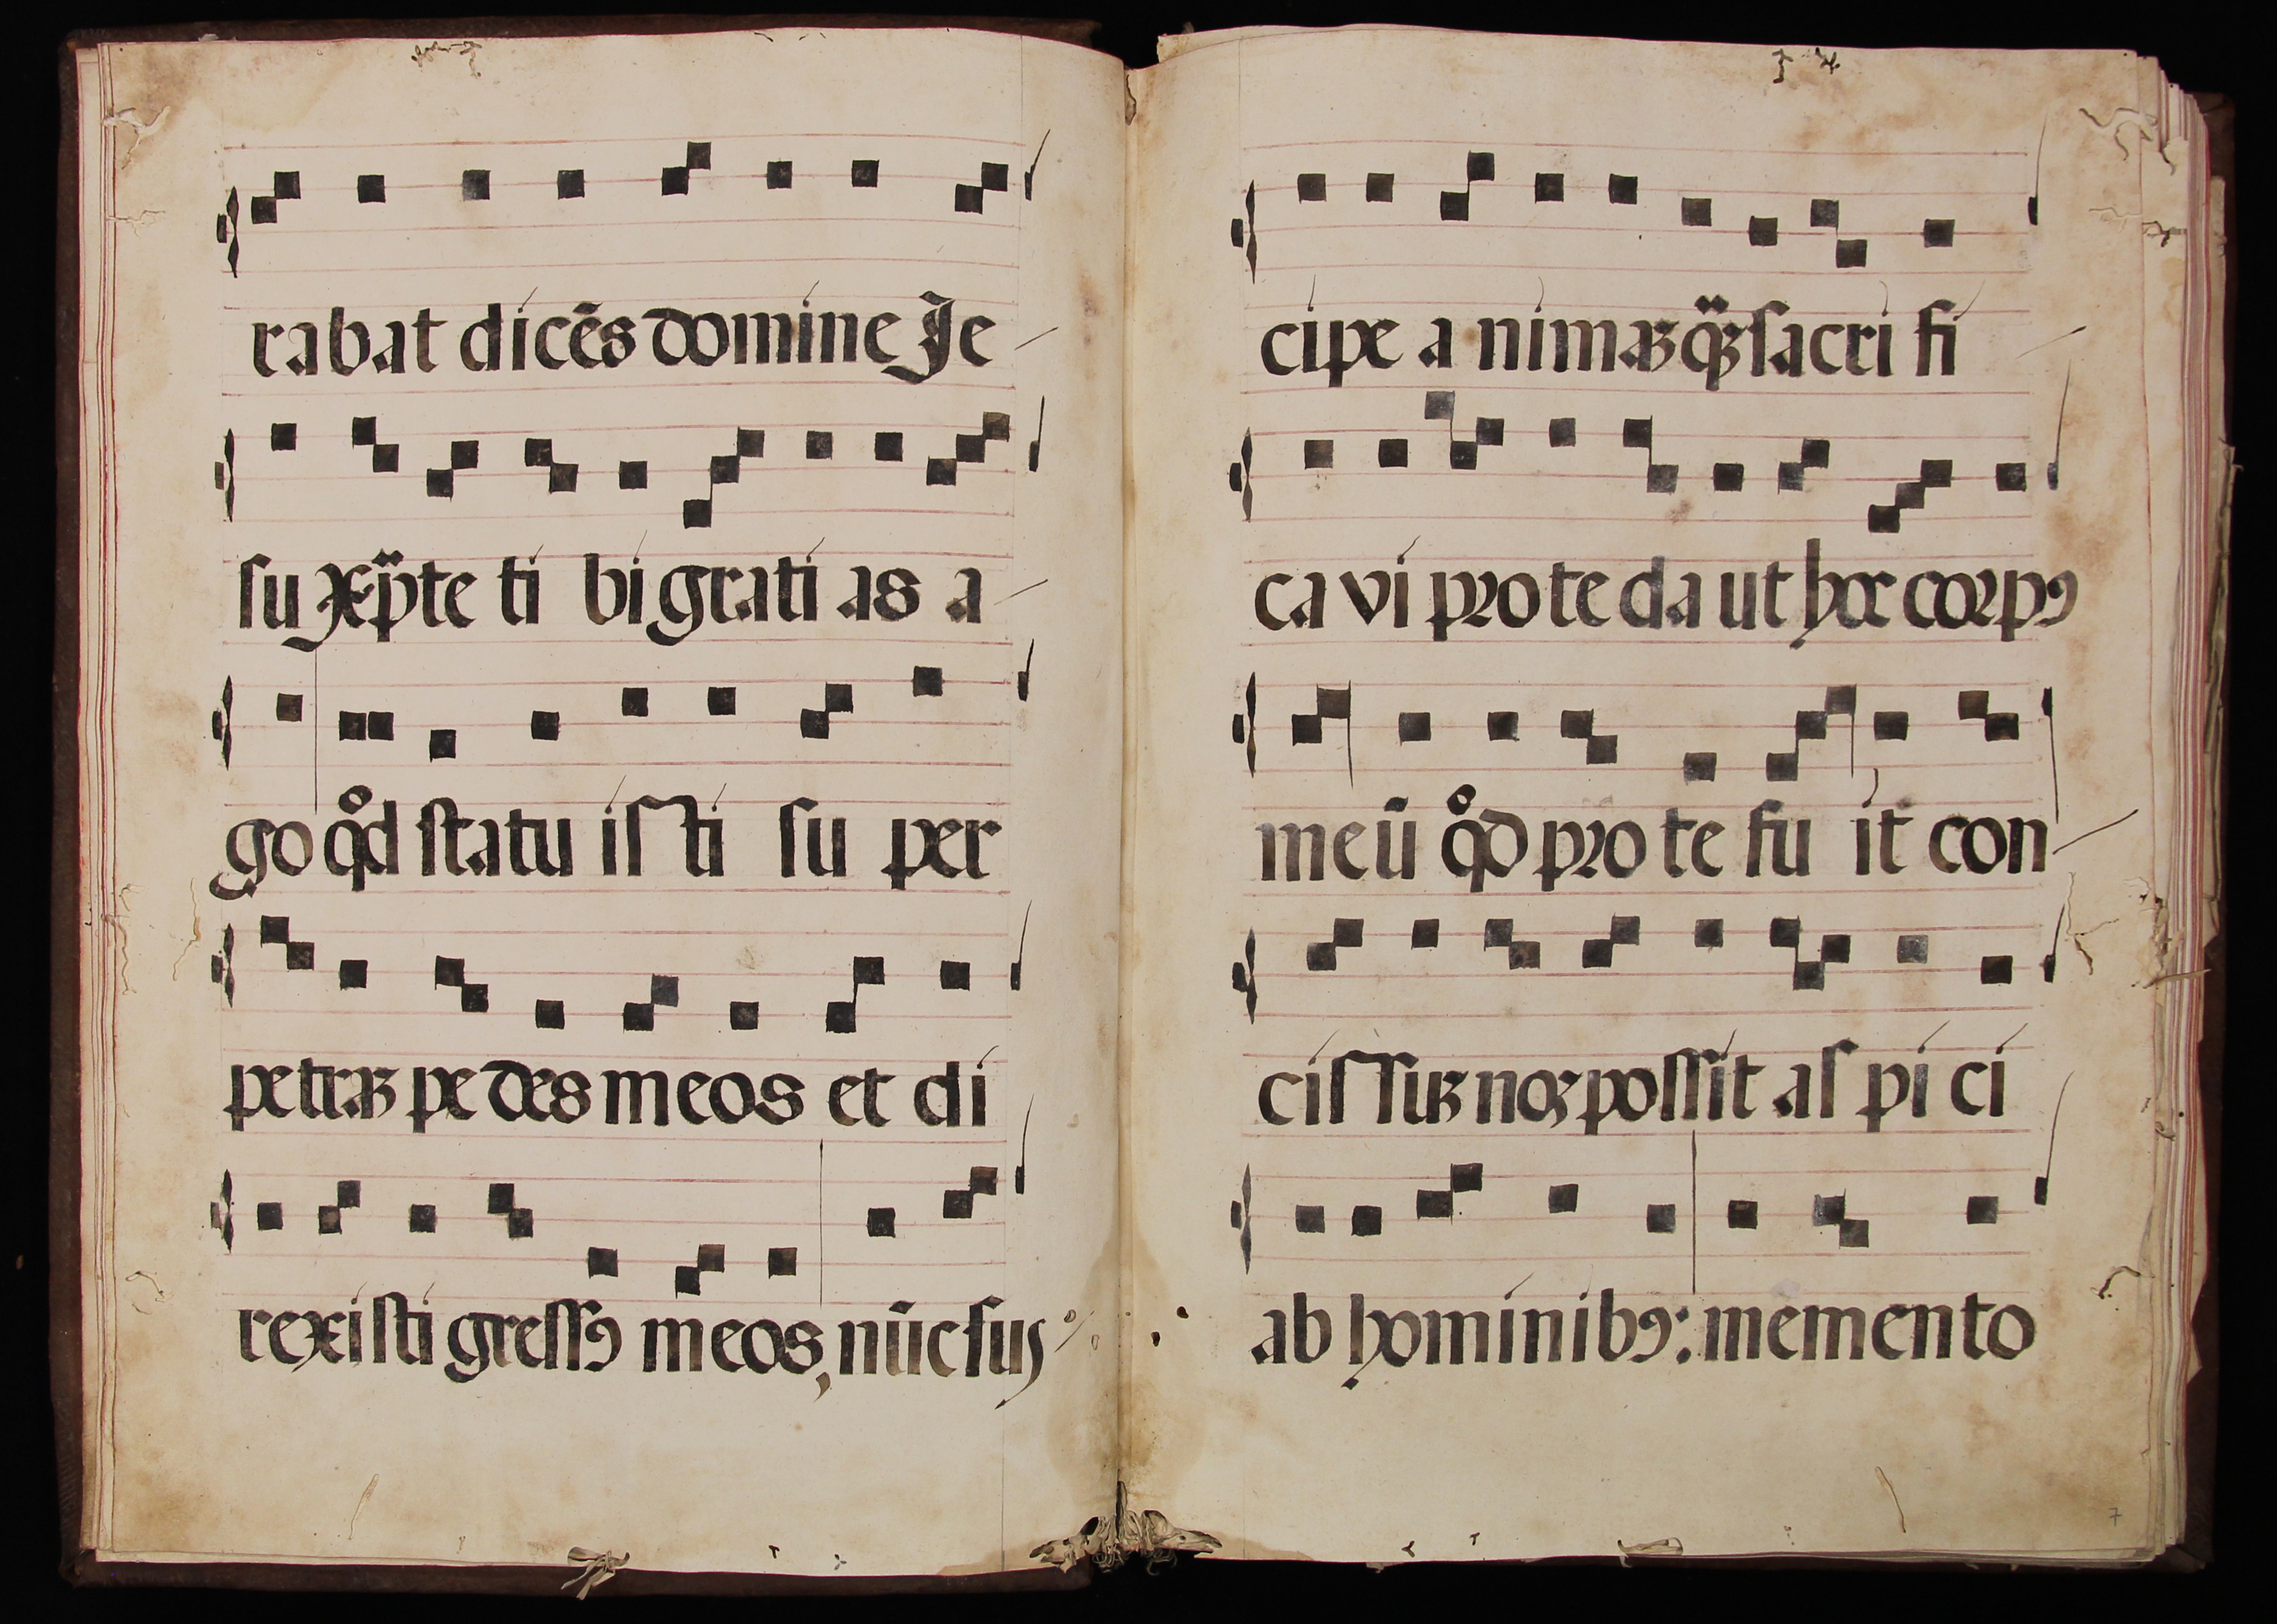 rabat dicēs domine Je
su xp̄te ti bi grati as a
go qd statu is ti su per
petraꝫ pe des meos et di
rexisti gressꝰ meos, nūc sus
cipe a nimaꝫ qꝫ sacri fi
ca vi pro te da ut hoc corpꝰ
meū qd pro te fu it con
cis suꝫ noꝫ possit as pi ci
ab hominibꝰ: memento
7